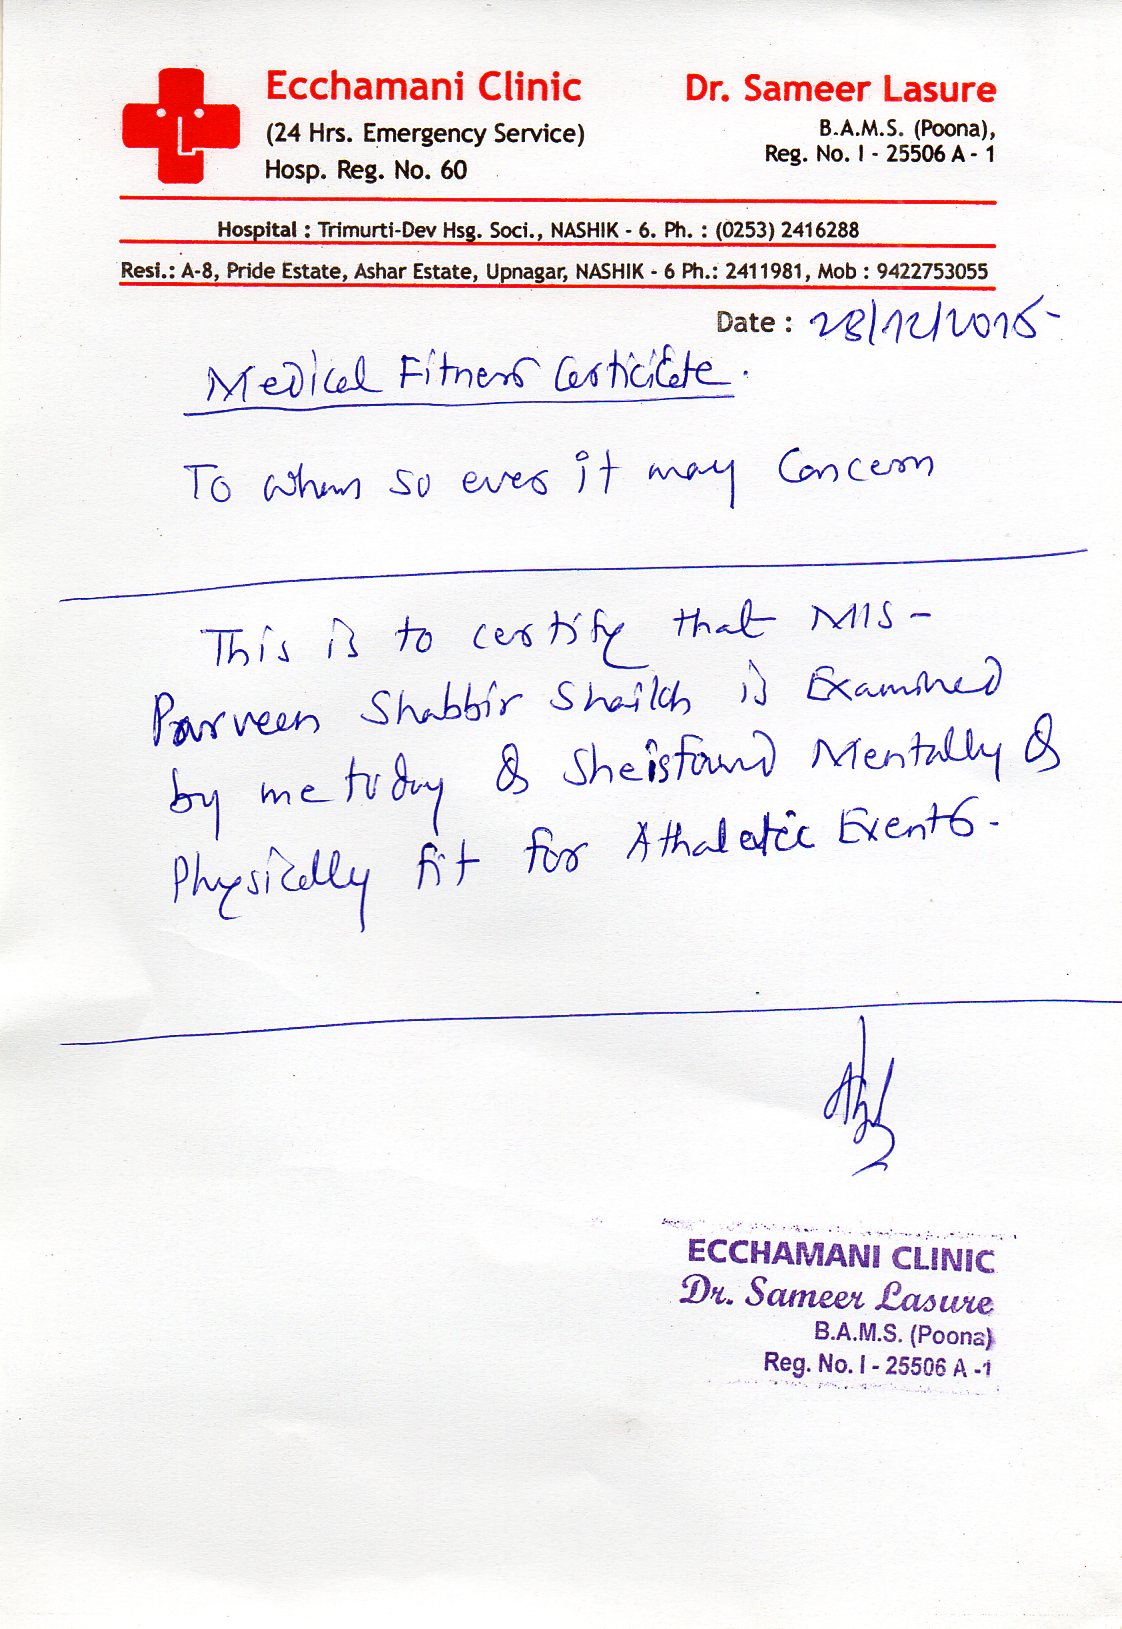 Ecchamani Clinic
(24 Hrs. Emergency Service)
Hosp. Reg. No. 60
Dr. Sameer Lasure
B.A.M.S. (Poona),
Reg. No. I - 25506 A - 1
Hospital : Trimurti-Dev Hsg. Soci., NASHIK - 6. Ph. : (0253) 2416288
Resi.: A-8, Pride Estate, Ashar Estate, Upnagar, NASHIK - 6 Ph.: 2411981, Mob : 9422753055
Date : 28/12/2015-
Medical Fitness Certificate.
To whom so ever it may Concern
This is to certify that MIS -
Parveen Shabbir Shaikh is Examined
by me today & She is found Mentally &
Physically fit for Athaletic Events.
ECCHAMANI CLINIC
Dr. Sameer Lasure
B.A.M.S. (Poona)
Reg. No. I - 25506 A -1